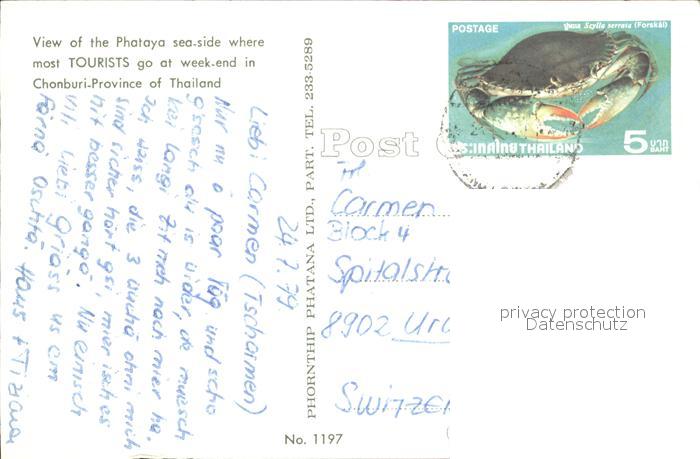 View of the Phataya sea-side where
most TOURISTS go at week-end in
Chonburi-Province of Thailand
24.7.79
Liebi Carmen (Tschaimen)
Nur nu ä paar Täg und scho
gsesch du is wider, de muesch
kei langi Zit meh nach mier ha.
Ich weiss, die 3 wuchä ohni mich
sind sicher hart gsi, mier isch es
nit besser gangä. Nu einisch
vili liebi Grüess us em
färnä Oschtä. Hans + Tiziana
PHORNTHIP PHATANA LTD., PART. TEL. 233-5289
No. 1197
Post
POSTAGE
ปูทะเล Scylla serrata (Forskål)
ประเทศไทย THAILAND
5 บาท BAHT
Carmen
Block 4
Spitalstr
8902 Urd
Switzer
privacy protection
Datenschutz